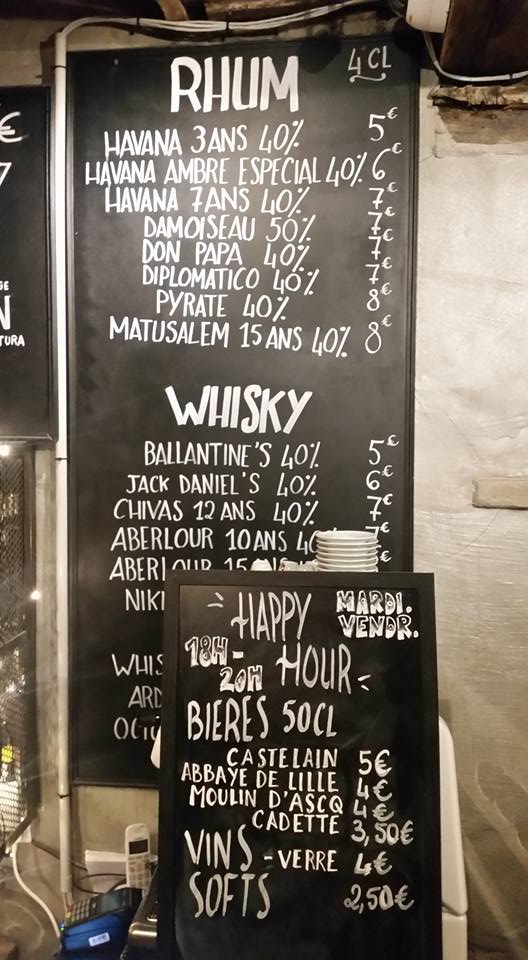 RHUM 4 CL
HAVANA 3 ANS 40% 5€
HAVANA AMBRE ESPECIAL 40% 6€
HAVANA 7 ANS 40% 7€
DAMOISEAU 50% 7€
DON PAPA 40% 7€
DIPLOMATICO 40% 7€
PYRATE 40% 8€
MATUSALEM 15 ANS 40% 8€
WHISKY
BALLANTINE'S 40% 5€
JACK DANIEL'S 40% 6€
CHIVAS 12 ANS 40% 7€
ABERLOUR 10 ANS 40
ABERLOUR 15
HAPPY HOUR
MARDI.
VENDR.
18H-
20H
BIERES 50CL
CASTELAIN 5€
ABBAYE DE LILLE 4€
MOULIN D'ASCQ 4€
CADETTE 3,50€
VINS - VERRE 4€
SOFTS 2,50€